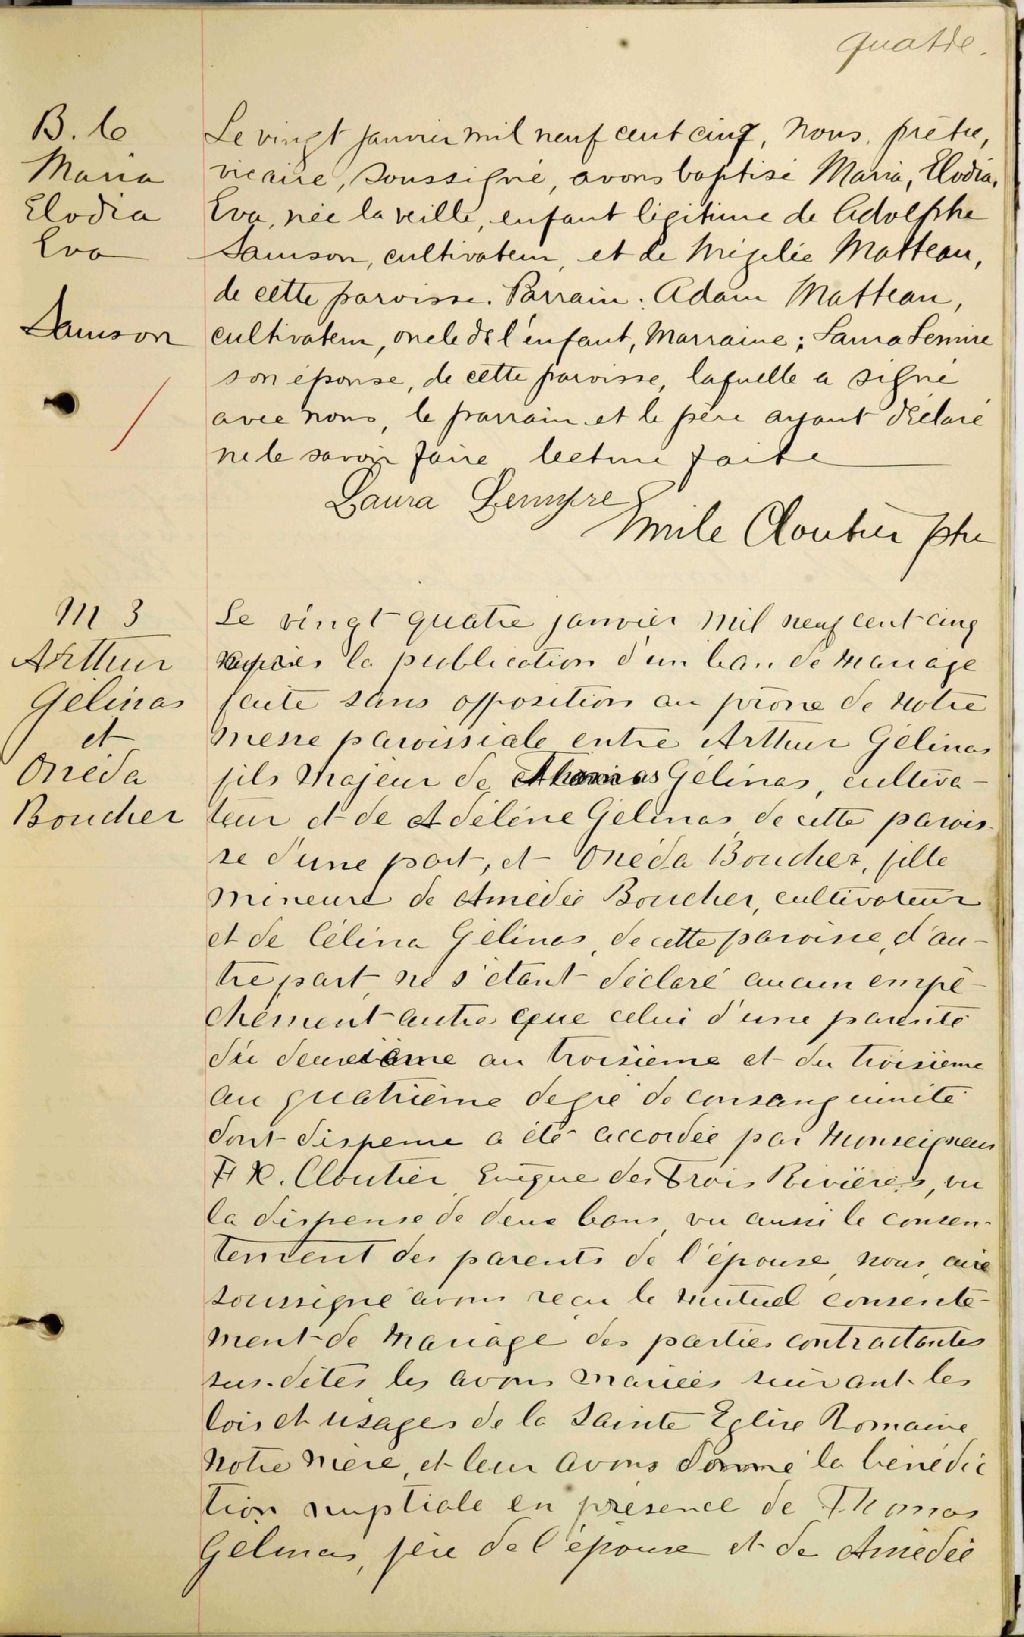 quatre.
B. 6
Maria
Elodia
Eva
Samson
Le vingt janvier mil neuf cent cinq, nous, prêtre,
vicaire, soussigné, avons baptisé Maria, Elodia,
Eva, née la veille, enfant légitime de Adolphe
Samson, cultivateur, et de Mézélie Matteau,
de cette paroisse. Parrain: Adam Matteau,
cultivateur, oncle de l'enfant, Marraine; Laura Lemire
son épouse, de cette paroisse, laquelle a signé
avec nous, le parrain et le père ayant déclaré
ne le savoir faire lecture faite
Laura Lemyre
Emile Cloutier ptre
M 3
Arthur
Gélinas
et
Onéda
Boucher
Le vingt quatre janvier mil neuf cent cinq
après la publication d'un ban de mariage
faite sans opposition au prône de notre
messe paroissiale entre Arthur Gélinas
fils majeur de Thomas Gélinas, cultiva-
teur et de Adéline Gélinas, de cette parois-
se d'une part, et Onéda Boucher, fille
mineure de Amédée Boucher, cultivateur
et de Célina Gélinas, de cette paroisse, d'au-
tre part, ne s'étant déclaré aucun empê-
chement autre que celui d'une parenté
du deuxième au troisième et du troisième
au quatrième degré de consanguinité
dont dispense a été accordée par Monseigneur
F X. Cloutier, Evêque des Trois Rivières, vu
la dispense de deux bans, vu aussi le consen-
tement des parents de l'épouse, nous, curé
soussigné avons reçu le mutuel consente-
ment de mariage des parties contractantes
sus-dites, les avons mariées suivant les
lois et usages de la Sainte Eglise Romaine
notre mère, et leur avons donné la bénédic
tion nuptiale en présence de Thomas
Gélinas, père de l'épouse et de Amédée